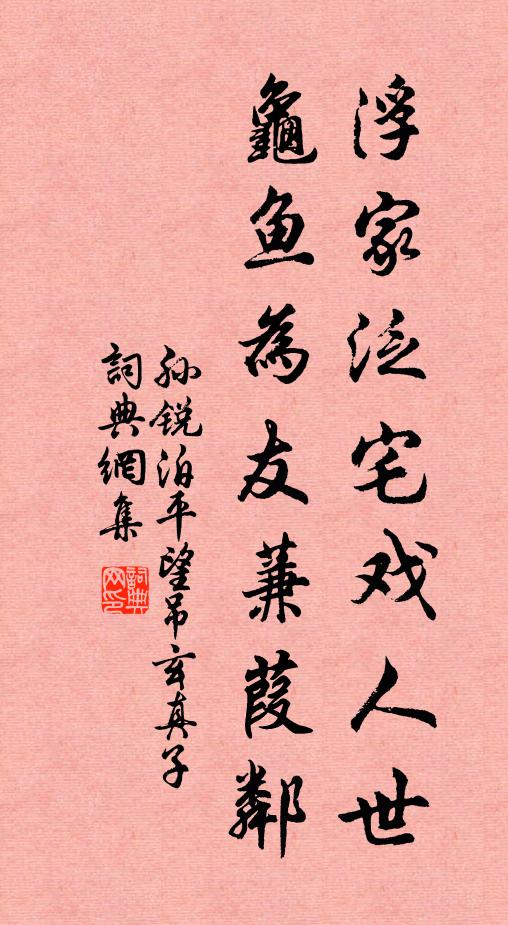 浮家泛宅戏人世
龜鱼為友蒹葭鄰
孙锐泊平望吊玄真子
詞典網集
詞典
网印